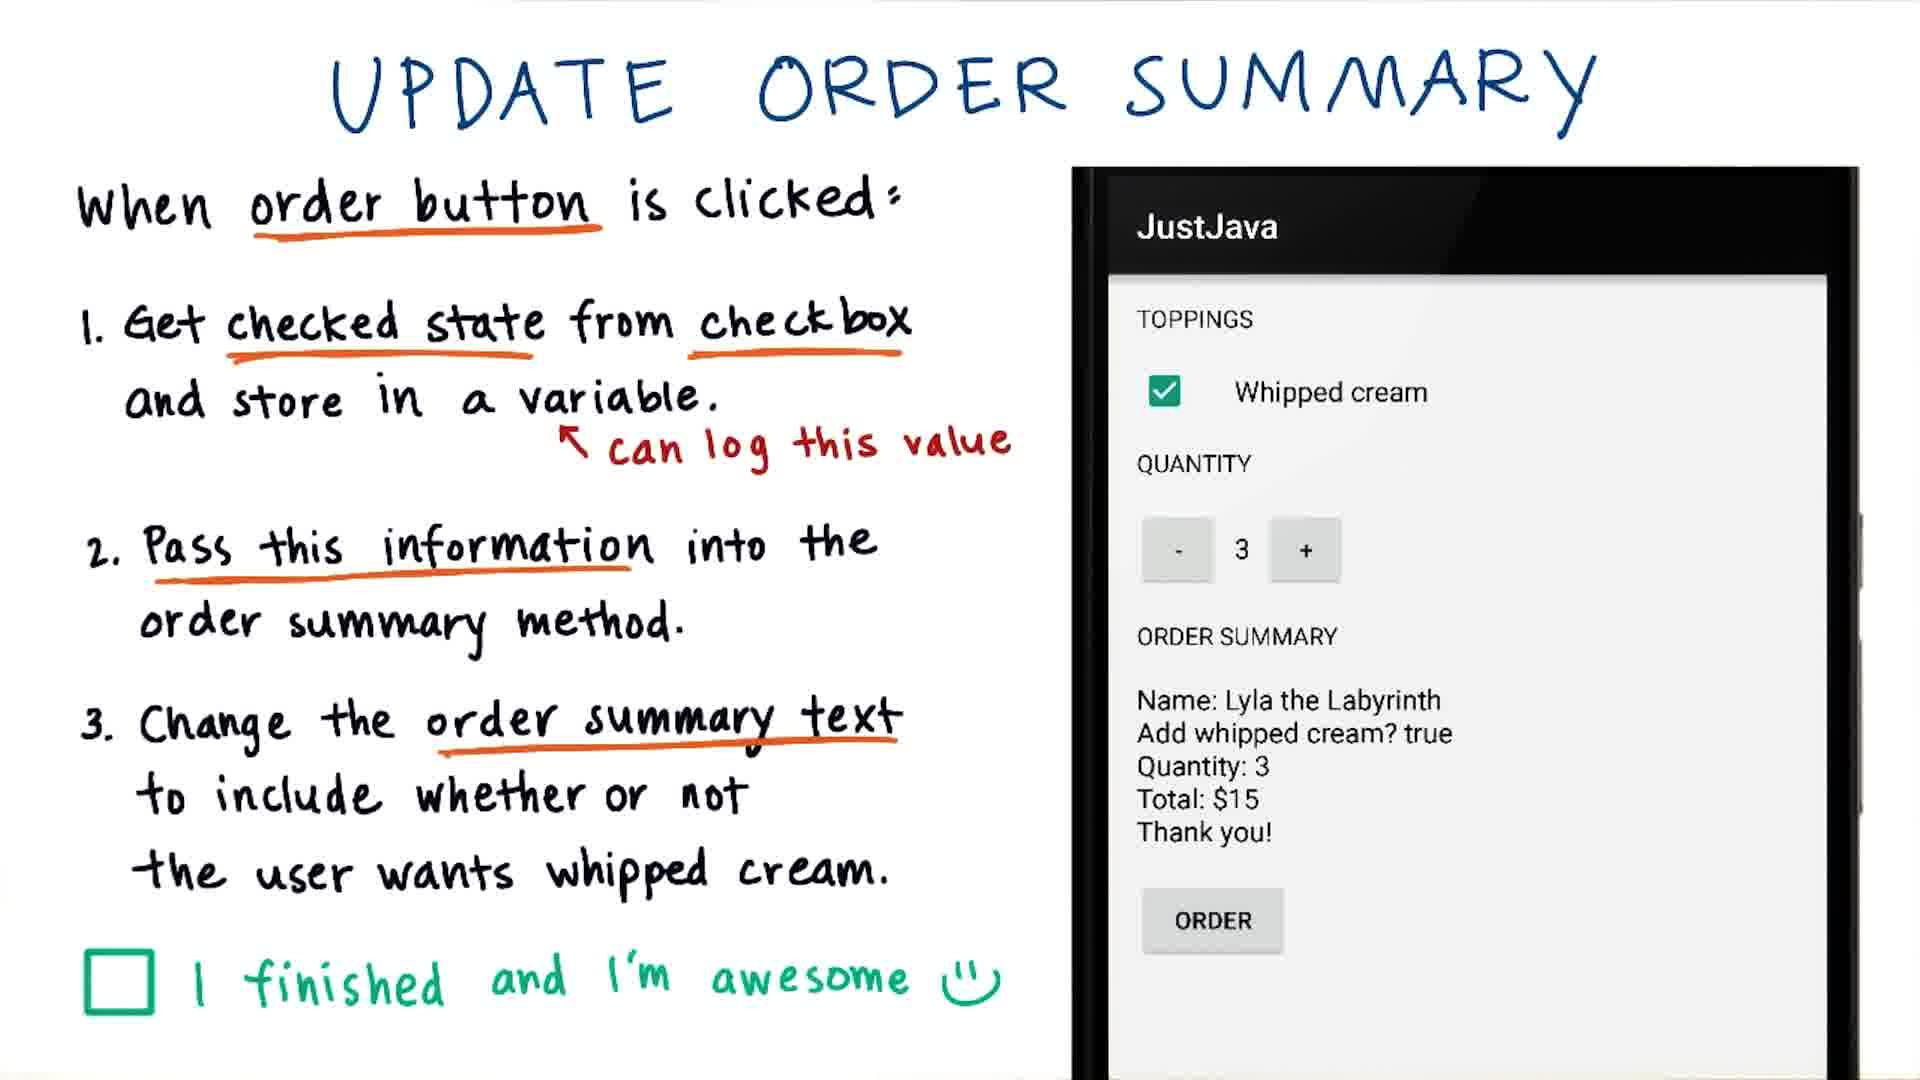 UPDATE ORDER SUMMARY
When order button is clicked:
1. Get checked state from checkbox
and store in a variable.
can log this value
2. Pass this information into the
order summary method.
3. Change the order summary text
to include whether or not
the user wants whipped cream.
I finished and I'm awesome
JustJava
TOPPINGS
Whipped cream
QUANTITY
- 3 +
ORDER SUMMARY
Name: Lyla the Labyrinth
Add whipped cream? true
Quantity: 3
Total: $15
Thank you!
ORDER